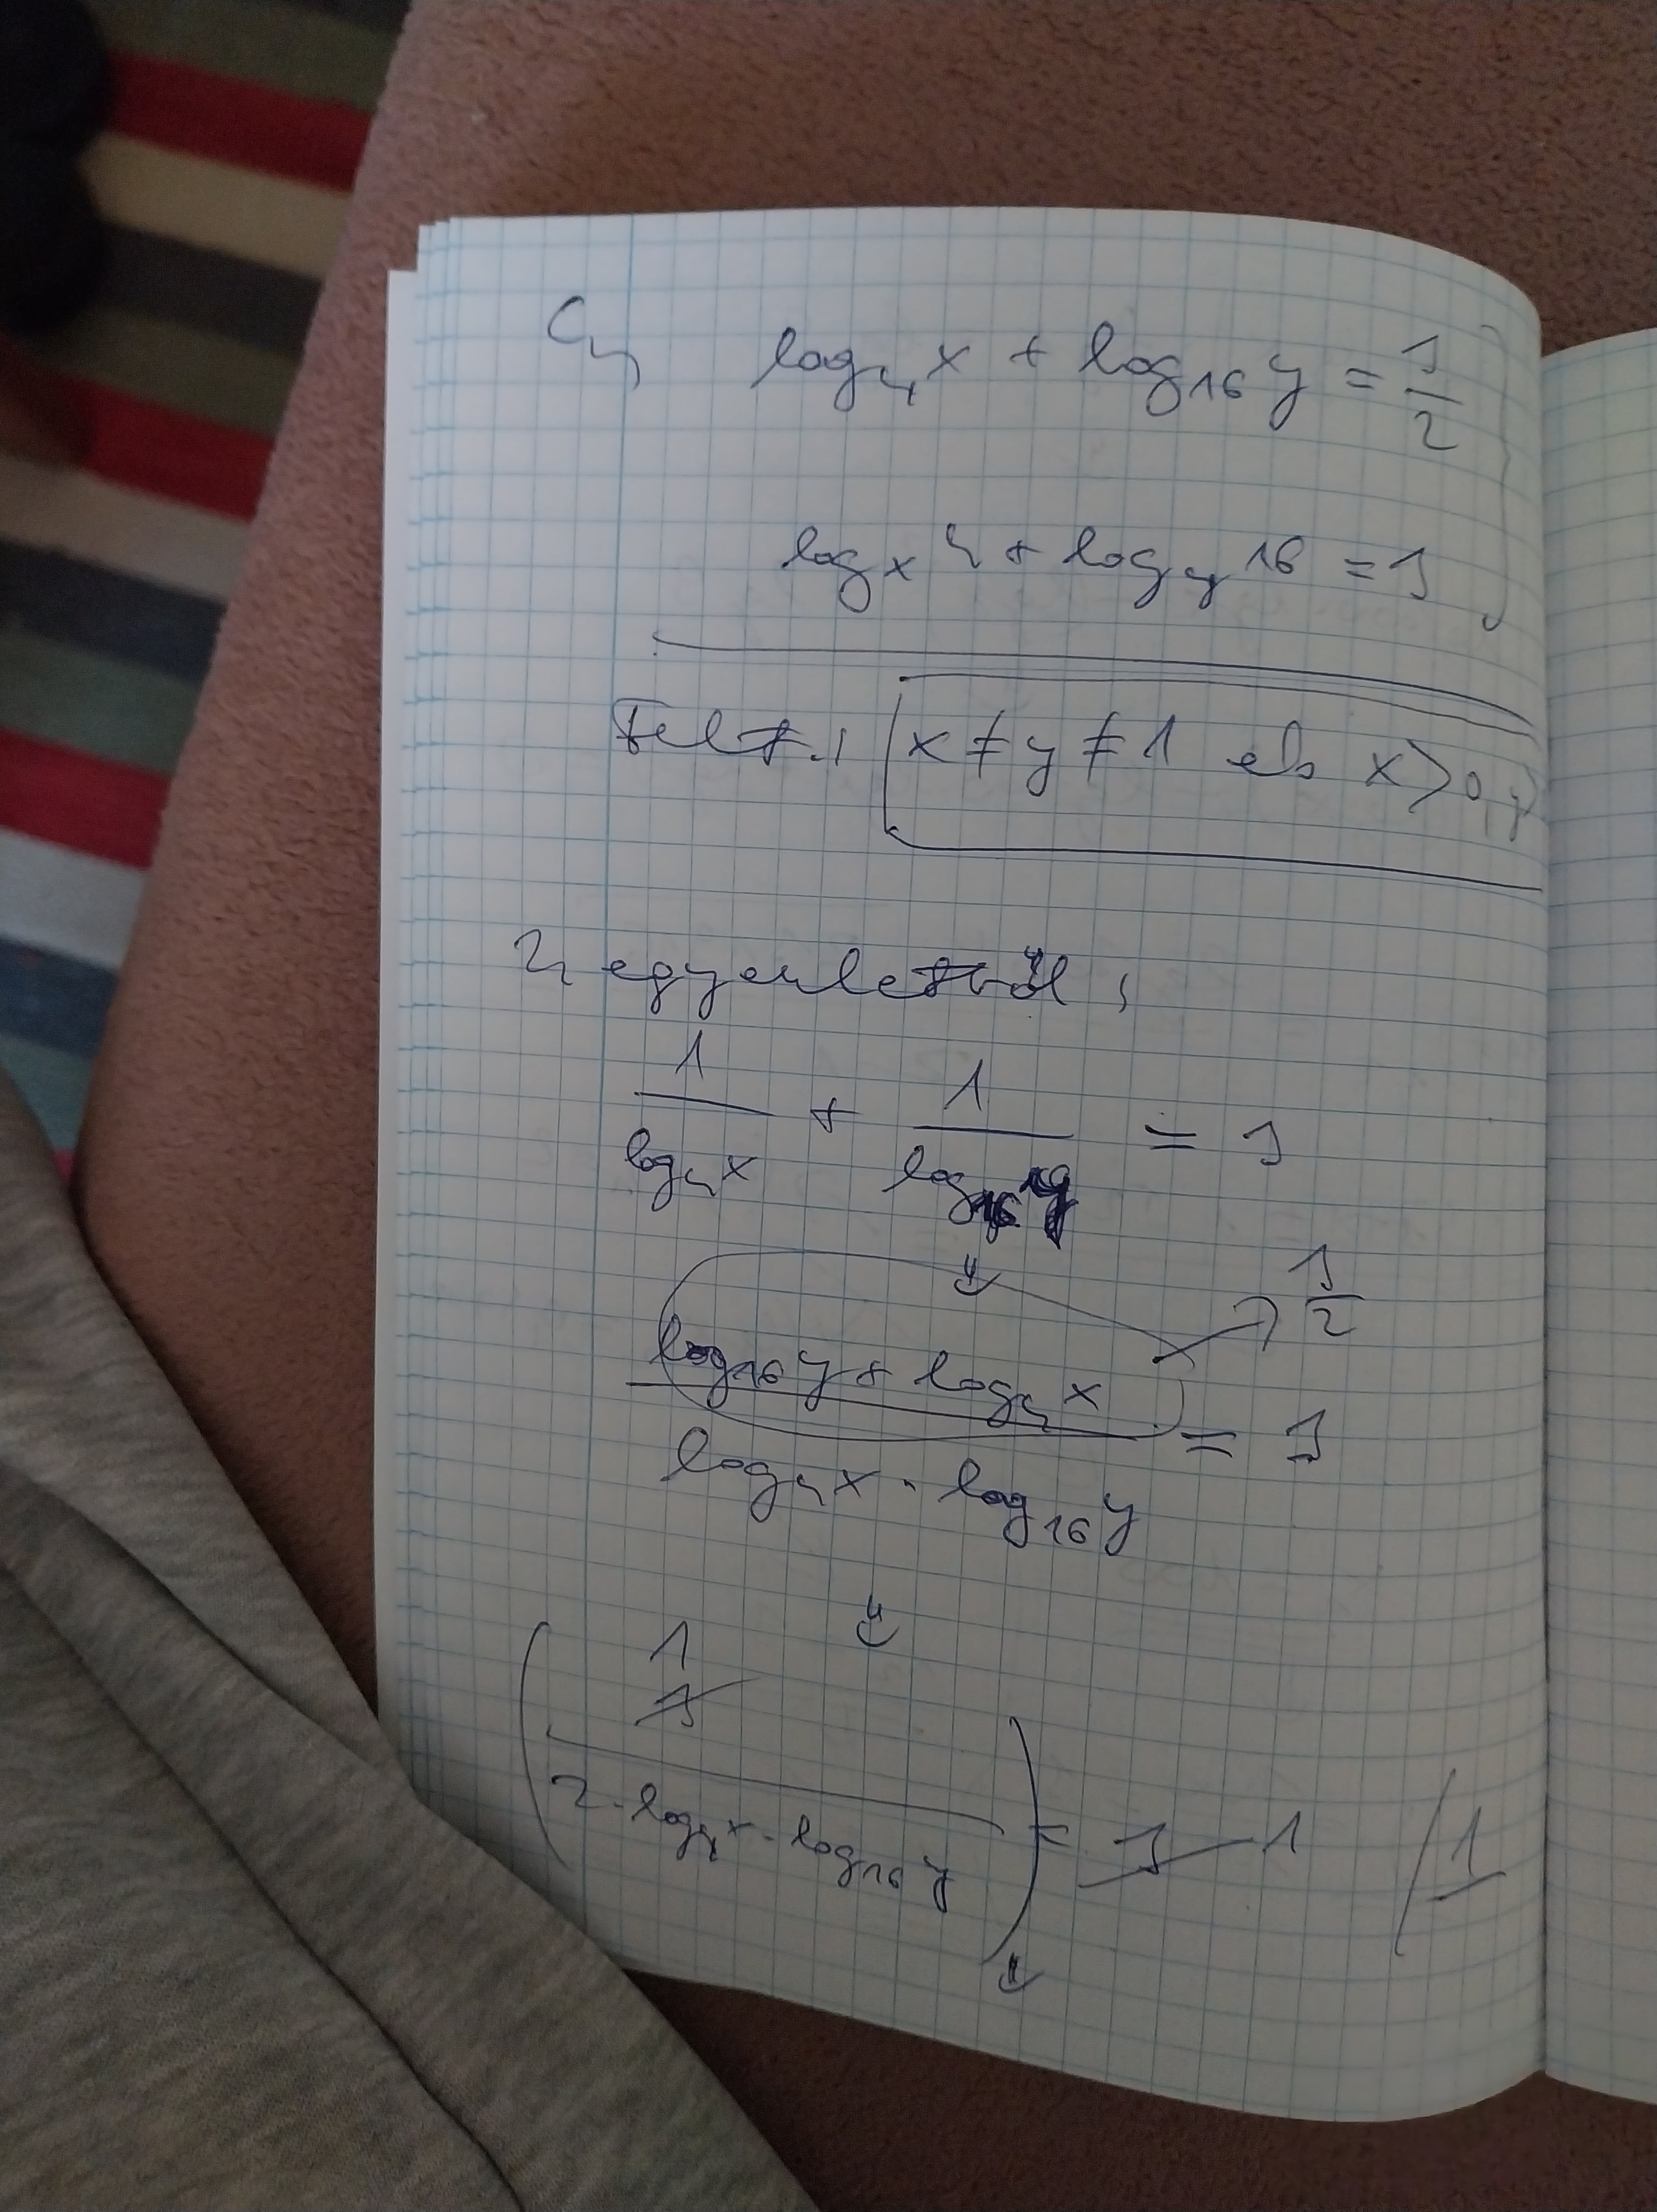 C,
log₄x + log₁₆y = 1/2
logₓ4 + log_y 16 = 1
Felt.: x ≠ y ≠ 1 és x > 0, y
2, egyenletből:
1/log₄x + 1/log₁₆y = 1
1/2
(log₁₆y + log₄x)/(log₄x · log₁₆y) = 1
(1/(2·log₄x·log₁₆y)) = 1